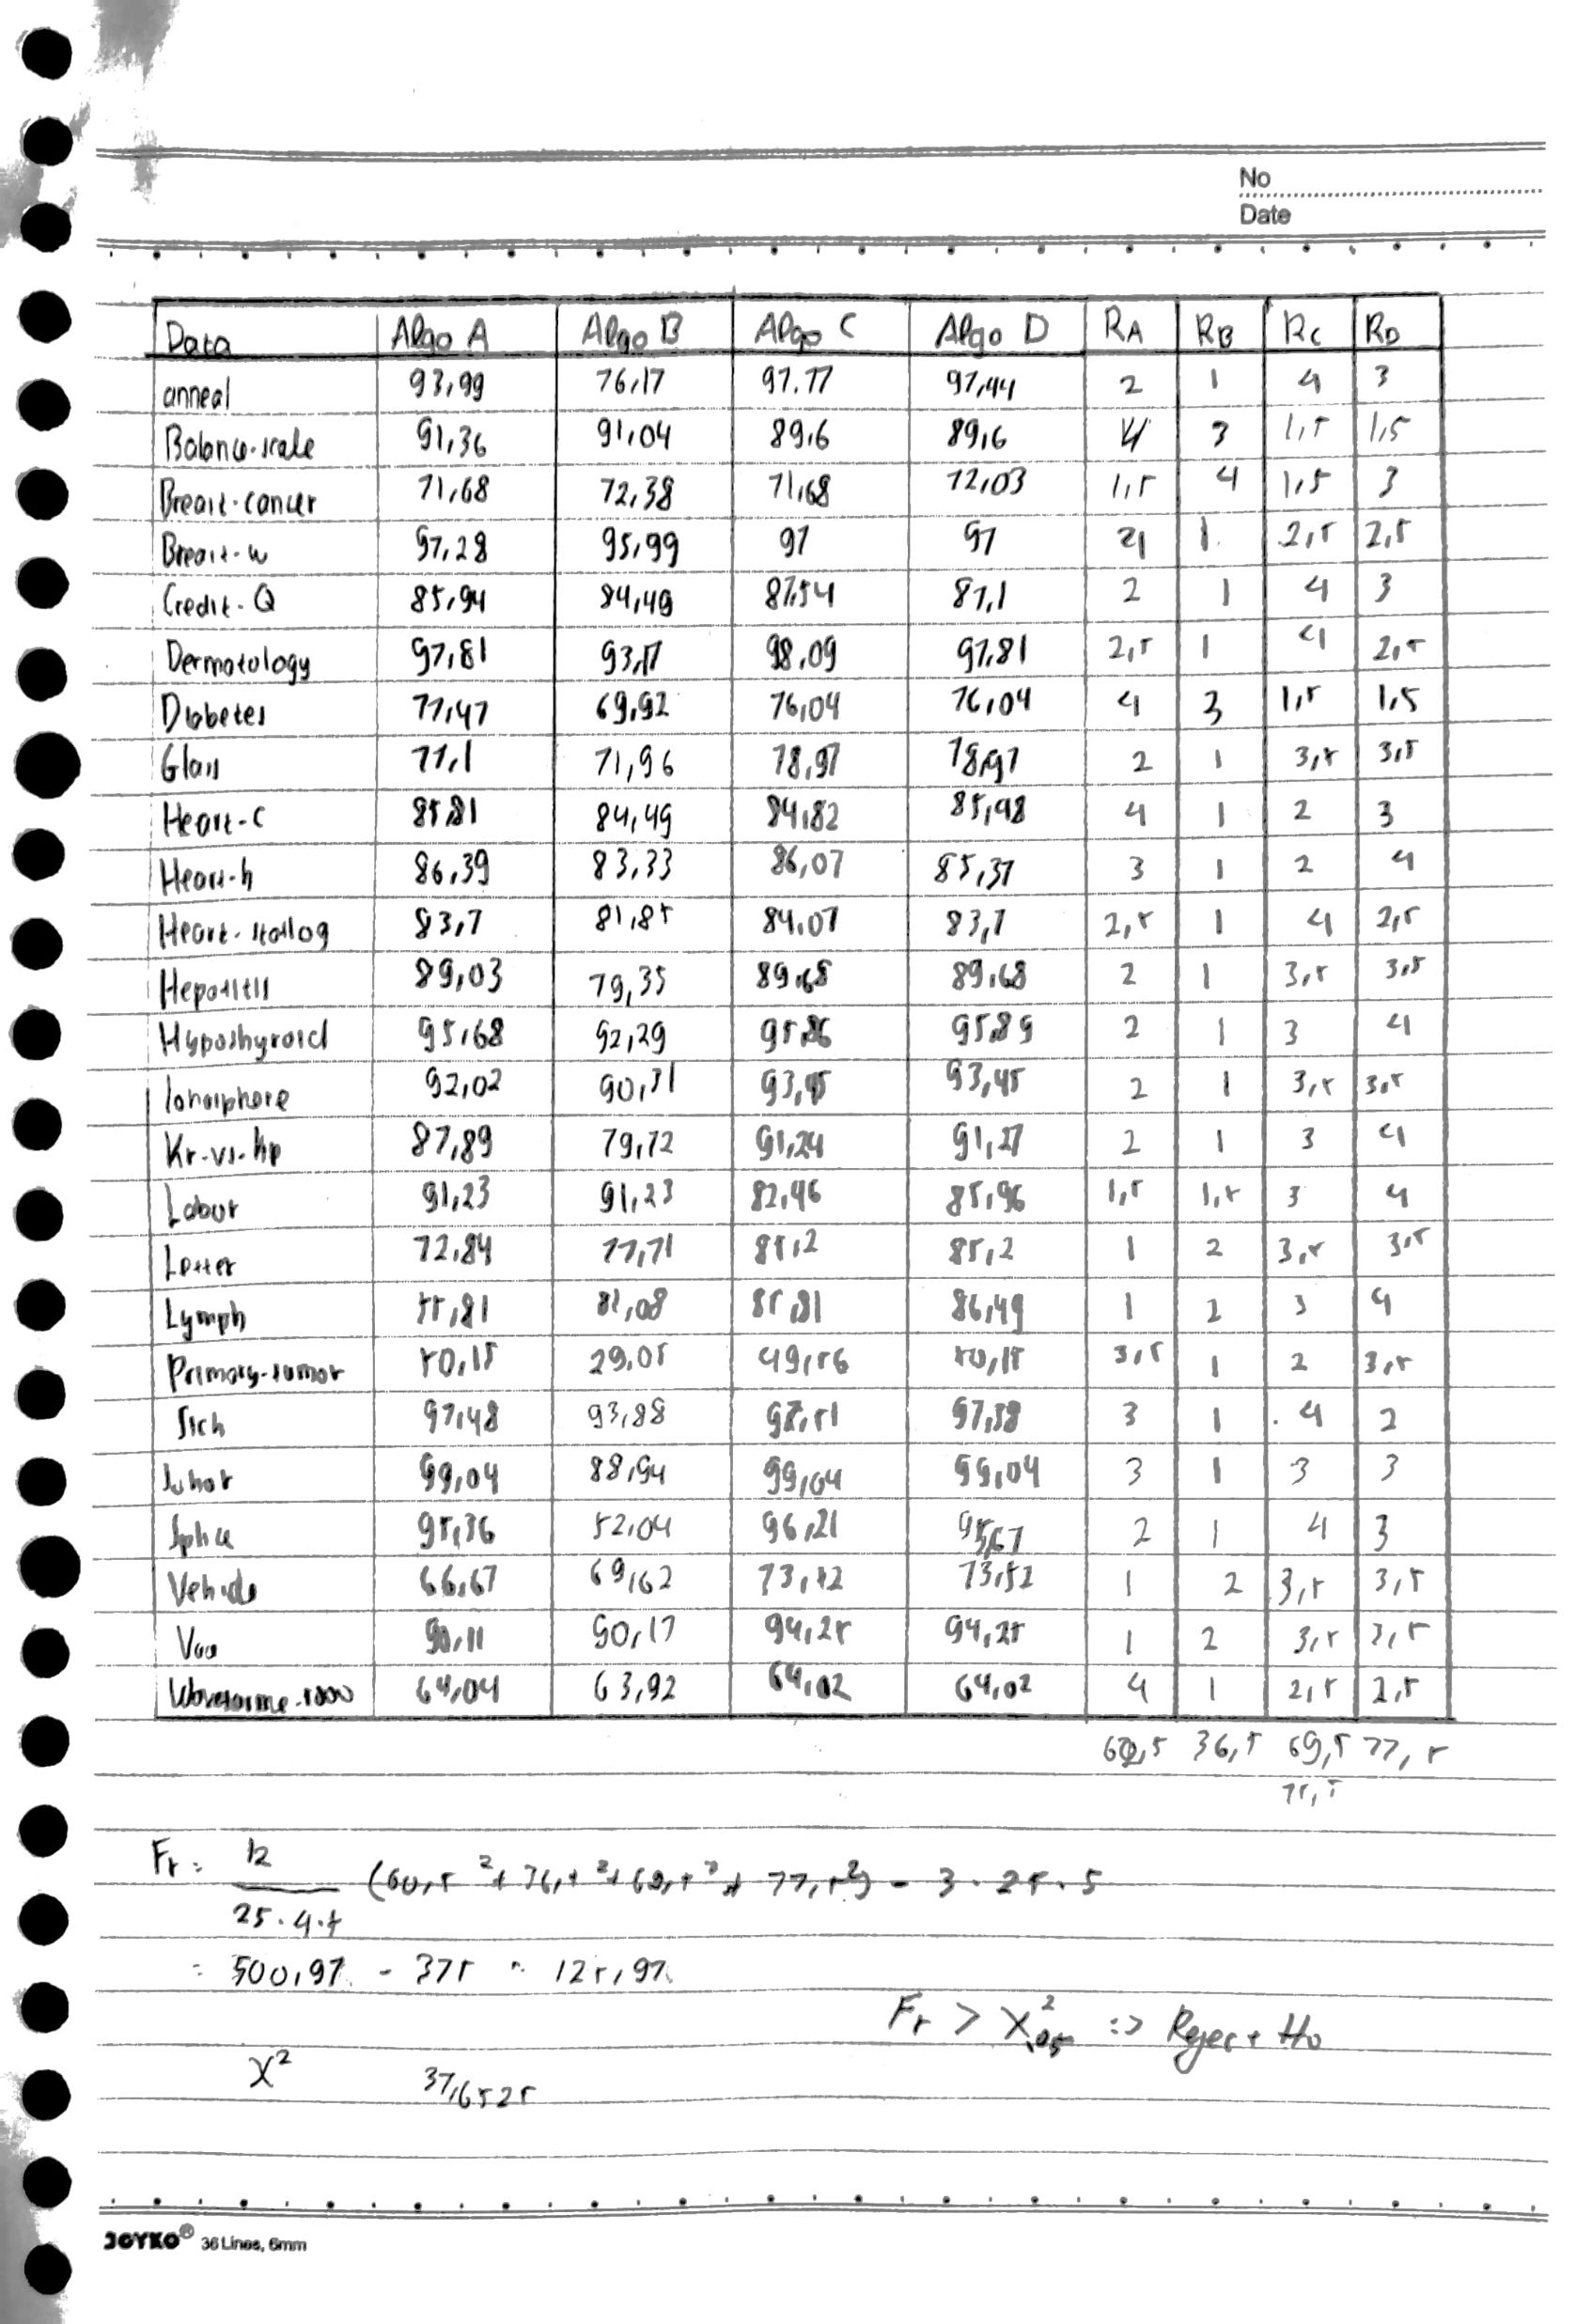 No
Date
Data Algo A Algo B Algo C Algo D RA RB RC RD
anneal 93,99 76,17 97.77 97,44 2 1 4 3
Balance-scale 91,36 91,04 89,6 89,6 4 3 1,5 1,5
Breast-cancer 71,68 72,38 71,68 72,03 1,5 4 1,5 3
Breast-w 97,28 95,99 97 97 4 1 2,5 2,5
Credit-Q 85,94 84,49 87,54 87,1 2 1 4 3
Dermatology 97,81 93,17 98,09 97,81 2,5 1 4 2,5
Diabetes 77,47 69,92 76,04 76,04 4 3 1,5 1,5
Glass 77,1 71,96 78,97 78,97 2 1 3,5 3,5
Heart-C 85,81 84,49 84,82 85,48 4 1 2 3
Heart-h 86,39 83,33 86,07 85,37 3 1 2 4
Heart-statlog 83,7 81,85 84,07 83,7 2,5 1 4 2,5
Hepatitis 89,03 79,35 89,68 89,68 2 1 3,5 3,5
Hypothyroid 95,68 92,29 95,86 95,89 2 1 3 4
Ionosphere 92,02 90,31 93,45 93,45 2 1 3,5 3,5
Kr-vs-kp 87,89 79,72 91,24 91,27 2 1 3 4
Labor 91,23 91,23 82,46 85,96 1,5 1,5 3 4
Letter 72,84 77,71 85,2 85,2 1 2 3,5 3,5
Lymph 55,81 81,08 85,81 86,49 1 2 3 4
Primary-tumor 50,15 29,05 49,56 50,15 3,5 1 2 3,5
Sick 97,48 93,88 97,51 97,38 3 1 4 2
99,04 88,94 99,04 99,04 3 1 3 3
Splice 95,36 52,04 96,21 95,67 2 1 4 3
Vehicle 66,67 69,62 73,52 73,52 1 2 3,5 3,5
90,11 90,17 94,25 94,25 1 2 3,5 3,5
64,04 63,92 64,02 64,02 4 1 2,5 2,5
60,5 36,5 69,5 77,5
75,5
Fr = 12 / 25.4.5 (60,5² + 36,5² + 69,5² + 77,5²) - 3.25.5
= 500,97 - 375 = 125,97
Fr > X²,05 => Reject Ho
X² 37,6525
JOYKO® 36 Lines, 6mm